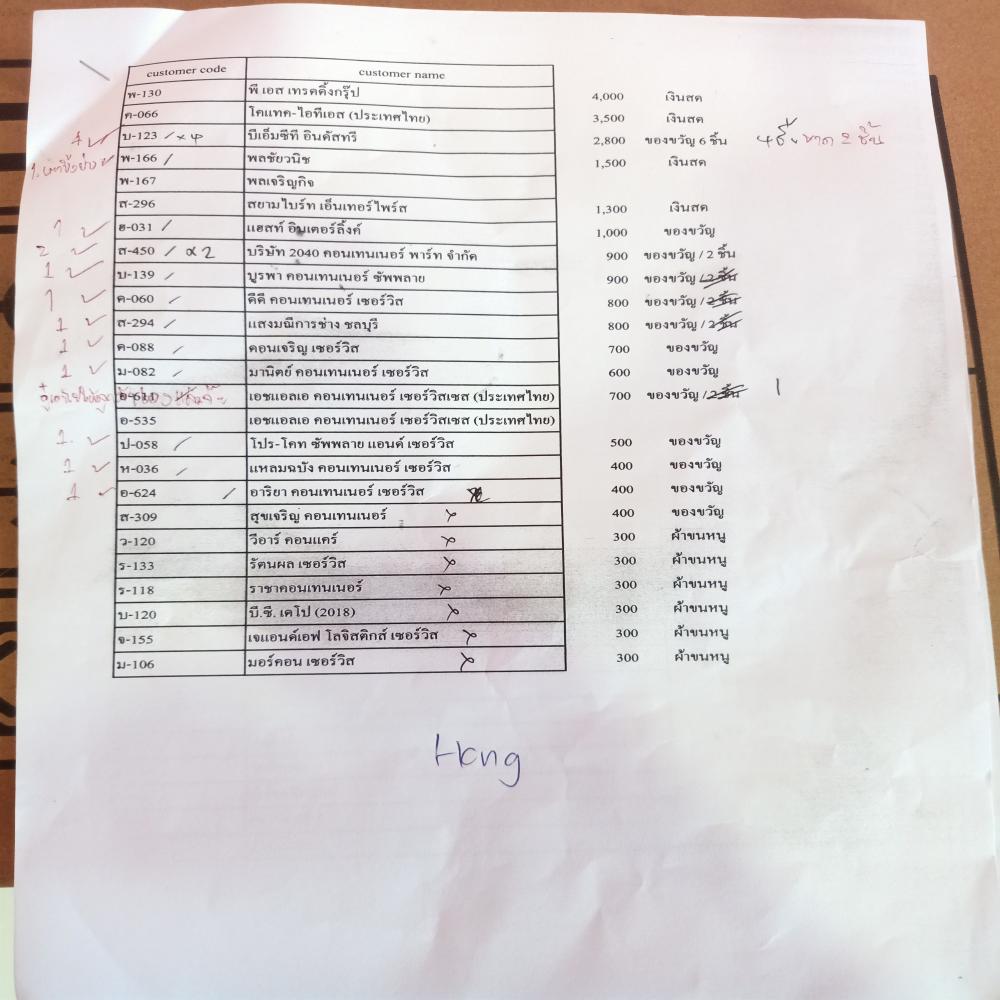 customer code customer name
พ-130 พี เอส เทรคดิ้งกรุ๊ป 4,000 เงินสด
ค-066 โคแทค-ไอทีเอส (ประเทศไทย) 3,500 เงินสด
บ-123 / x 4 บีเอ็มซีที อินดัสทรี 2,800 ของขวัญ 6 ชิ้น ขาด 2 ชิ้น
พ-166 / พลชัยวนิช 1,500 เงินสด
พ-167 พลเจริญกิจ
ส-296 สยามไบร์ท เอ็นเทอร์ไพร์ส 1,300 เงินสด
1 ✓ ฮ-031 / แฮสท์ อินเตอร์ลิ้งค์ 1,000 ของขวัญ
2 ✓ ส-450 / x 2 บริษัท 2040 คอนเทนเนอร์ พาร์ท จำกัด 900 ของขวัญ / 2 ชิ้น
1 ✓ บ-139 / บูรพา คอนเทนเนอร์ ซัพพลาย 900 ของขวัญ / 2 ชิ้น
1 ✓ ค-060 / ดีดี คอนเทนเนอร์ เซอร์วิส 800 ของขวัญ / 2 ชิ้น
1 ✓ ส-294 / แสงมณีการช่าง ชลบุรี 800 ของขวัญ / 2 ชิ้น
1 ✓ ค-088 / คอนเจริญ เซอร์วิส 700 ของขวัญ
1 ✓ ม-082 / มานิตย์ คอนเทนเนอร์ เซอร์วิส 600 ของขวัญ
อ-611 เอชแอลเอ คอนเทนเนอร์ เซอร์วิสเซส (ประเทศไทย) 700 ของขวัญ / 2 ชิ้น 1
อ-535 เอชแอลเอ คอนเทนเนอร์ เซอร์วิสเซส (ประเทศไทย)
1. ✓ ป-058 / โปร-โคท ซัพพลาย แอนด์ เซอร์วิส 500 ของขวัญ
1 ✓ ห-036 / แหลมฉบัง คอนเทนเนอร์ เซอร์วิส 400 ของขวัญ
1 ✓ อ-624 / อาริยา คอนเทนเนอร์ เซอร์วิส 400 ของขวัญ
ส-309 สุขเจริญ คอนเทนเนอร์ x 400 ของขวัญ
ว-120 วีอาร์ คอนแคร์ x 300 ผ้าขนหนู
ร-133 รัตนผล เซอร์วิส x 300 ผ้าขนหนู
ร-118 ราชาคอนเทนเนอร์ x 300 ผ้าขนหนู
บ-120 บี.ซี. เคโป (2018) x 300 ผ้าขนหนู
จ-155 เจแอนด์เอฟ โลจิสติกส์ เซอร์วิส x 300 ผ้าขนหนู
ม-106 มอร์คอน เซอร์วิส x 300 ผ้าขนหนู